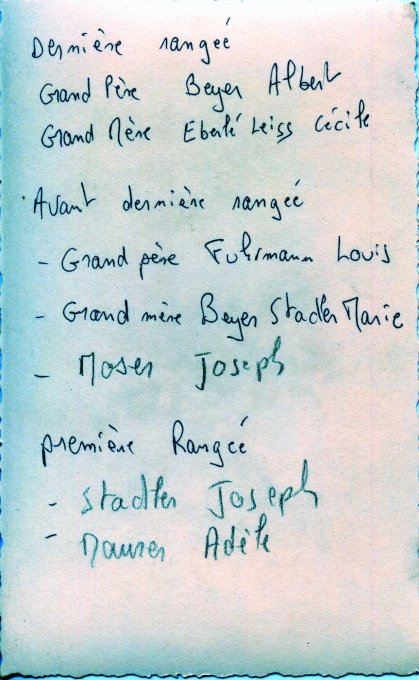 Dernière rangeé
Grand Père Beyer Albert
Grand Mère Eberlé Leiss Cécile
Avant dernière rangeé
- Grand père Fuhrmann Louis
- Grand mère Beyer Stadler Marie
- Moser Joseph
première Rangeé
- Stadler Joseph
- Maurer Adèle